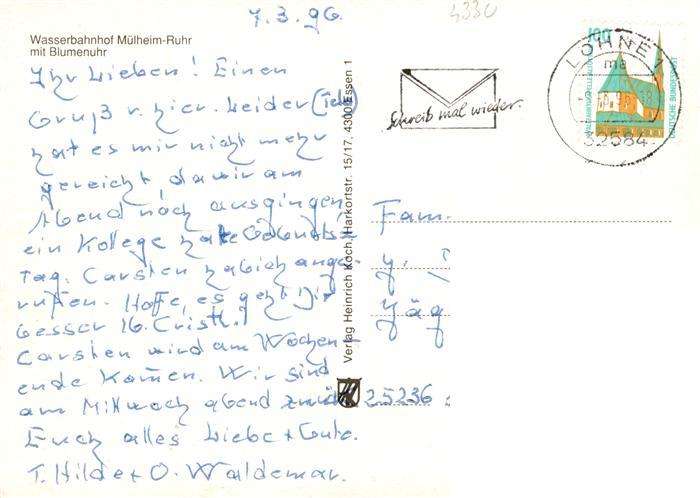 7.3.96.
4330
Wasserbahnhof Mülheim-Ruhr
mit Blumenuhr
Ihr Lieben! Einen
Gruß v. hier. Leider
hat es mir nicht mehr
gereicht, da wir am
Abend noch ausgingen
ein Kollege hatte Geburts=
tag. Carsten hab ich ange=
rufen. Hoffe, es geht Dir
besser lb. Cristl.
Carsten wird am Wochen-
ende kommen. Wir sind
am Mittwoch abend zurück
Euch alles Liebe + Gute.
T. Hilde + O. Waldemar.
Verlag Heinrich Koch, Harkortstr. 15/17, 4300 Essen 1
Schreib mal wieder.
LÖHNE 1
ma
32584
100
DEUTSCHE BUNDESPOST
Fam.
25236